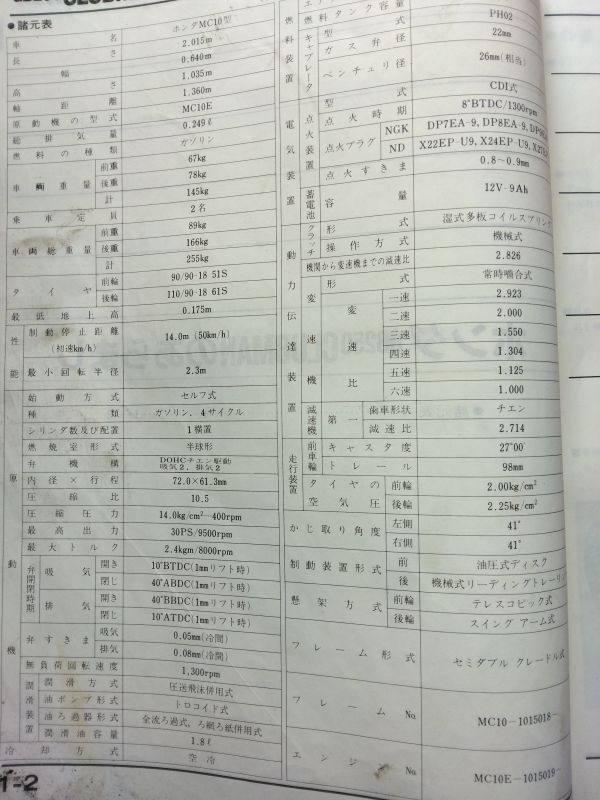 ●諸元表
車名 ホンダMC10型
長さ 2.015m
幅 0.640m
高さ 1.035m
軸距離 1.360m
原動機の型式 MC10E
総排気量 0.249ℓ
燃料の種類 ガソリン
車両重量 前重 67kg
後重 78kg
計 145kg
乗車定員 2名
車両総重量 前重 89kg
後重 166kg
計 255kg
タイヤ 前輪 90/90-18 51S
後輪 110/90-18 61S
最低地上高 0.175m
性能 制動停止距離 (初速km/h) 14.0m (50km/h)
最小回転半径 2.3m
原動機
始動方式 セルフ式
種類 ガソリン、4サイクル
シリンダ数及び配置 1横置
燃焼室形式 半球形
弁機構 DOHCチエン駆動
吸気2、排気2
内径×行程 72.0×61.3mm
圧縮比 10.5
圧縮圧力 14.0kg/cm²-400rpm
最高出力 30PS/9500rpm
最大トルク 2.4kgm/8000rpm
弁開閉時期 吸気 開き 10°BTDC(1mmリフト時)
閉じ 40°ABDC(1mmリフト時)
排気 開き 40°BBDC(1mmリフト時)
閉じ 10°ATDC(1mmリフト時)
弁すきま 吸気 0.05mm(冷間)
排気 0.08mm(冷間)
無負荷回転速度 1,300rpm
潤滑装置 潤滑方式 圧送飛沫併用式
油ポンプ形式 トロコイド式
油ろ過器形式 全流ろ過式、ろ網ろ紙併用式
潤滑油容量 1.8ℓ
冷却方式 空冷
1-2
燃料装置 燃料タンク容量
キャブレータ 型式 PH02
ガス弁径 22mm
ベンチュリ径 26mm(相当)
電気装置 点火装置 型式 CDI式
点火時期 8°BTDC/1300rpm
点火プラグ NGK DP7EA-9, DP8EA-9,
ND X22EP-U9, X24EP-U9,
点火すきま 0.8～0.9mm
蓄電池 容量 12V-9Ah
動力伝達装置
クラッチ 形式 湿式多板コイルスプリング
操作方式 機械式
機関から変速機までの減速比 2.826
変速機 形式 常時噛合式
変速比 一速 2.923
二速 2.000
三速 1.550
四速 1.304
五速 1.125
六速 1.000
減速機 第一 歯車形状 チエン
減速比 2.714
走行装置 前車輪 キャスタ度 27°00'
トレール 98mm
タイヤの空気圧 前輪 2.00kg/cm²
後輪 2.25kg/cm²
かじ取り角度 左側 41°
右側 41°
制動装置形式 前 油圧式ディスク
後 機械式リーディングトレーリン
懸架方式 前輪 テレスコピック式
後輪 スイング アーム式
フレーム形式 セミダブル クレードル式
フレームNo. MC10-1015018-
エンジンNo. MC10E-1015019-